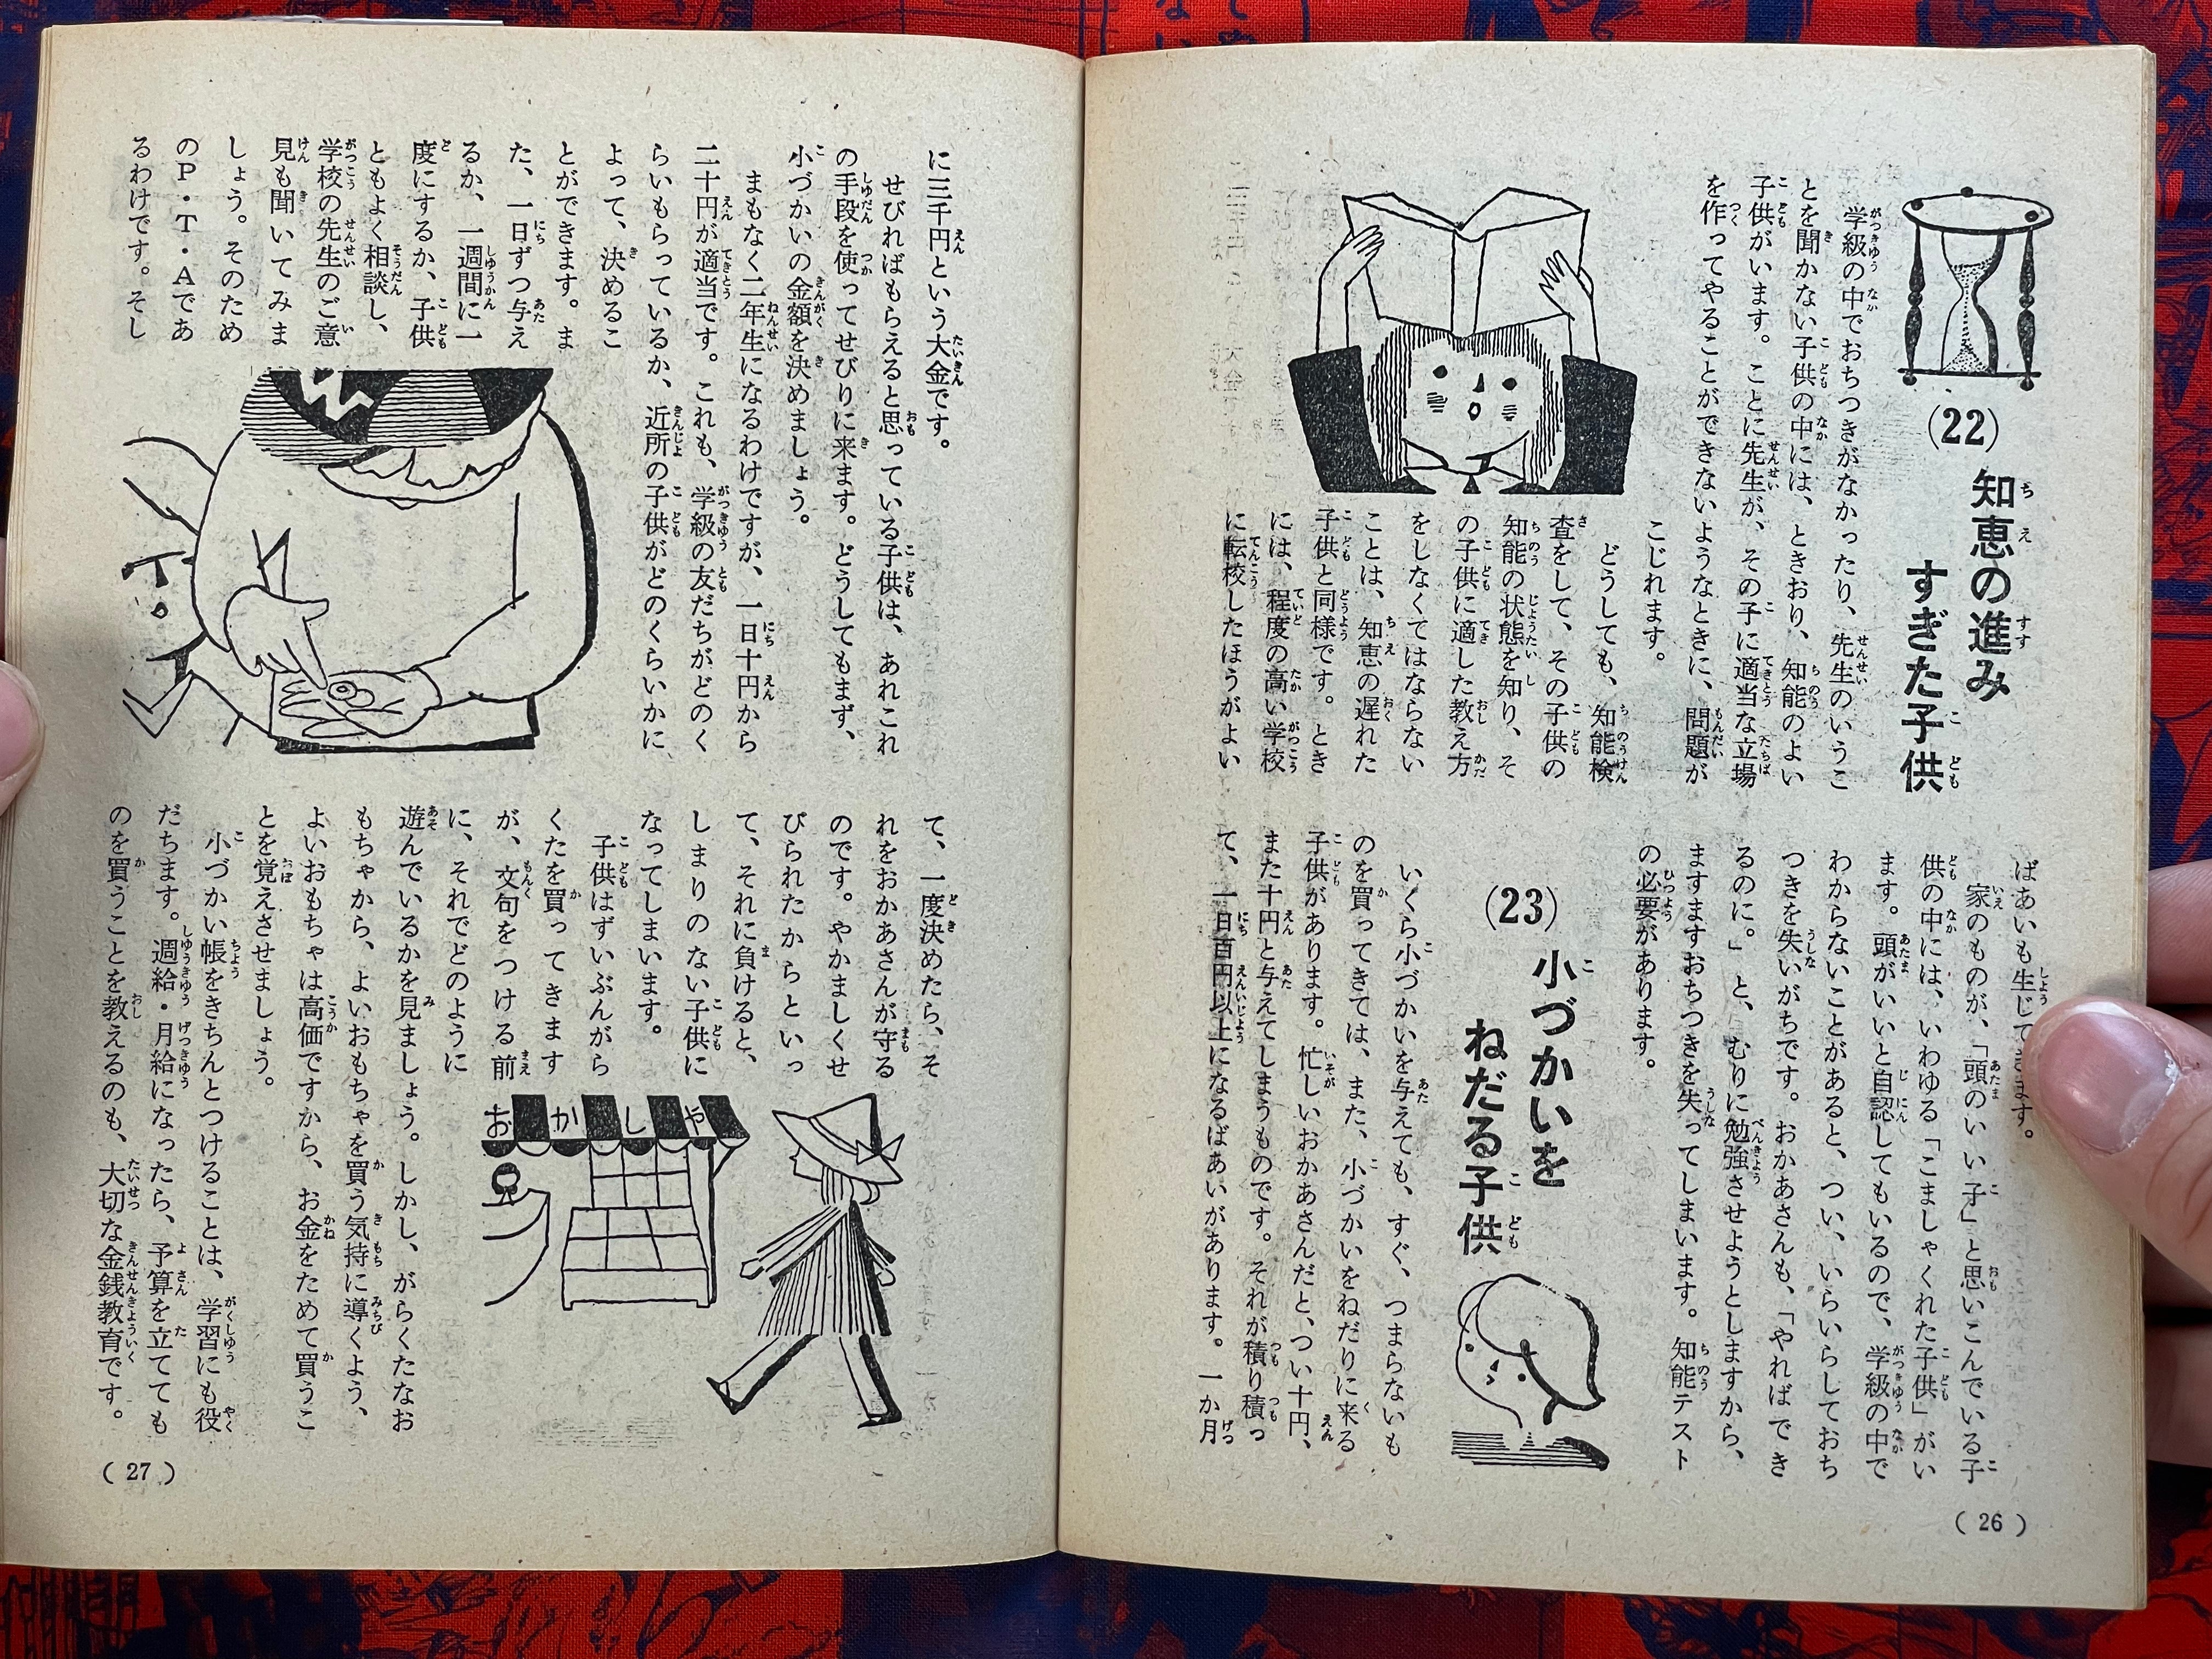 (22)
知恵の進み
すぎた子供
学級の中でおちつきがなかったり、先生のいうこ
とを聞かない子供の中には、ときおり、知能のよい
子供がいます。ことに先生が、その子に適当な立場
を作ってやることができないようなときに、問題が
こじれます。
どうしても、知能検
査をして、その子供の
知能の状態を知り、そ
の子供に適した教え方
をしなくてはならない
ことは、知恵の遅れた
子供と同様です。とき
には、程度の高い学校
に転校したほうがよい
ばあいも生じてきます。
家のものが、「頭のいい子」と思いこんでいる子
供の中には、いわゆる「こましゃくれた子供」がい
ます。頭がいいと自認してもいるので、学級の中で
わからないことがあると、つい、いらいらしておち
つきを失いがちです。おかあさんも、「やればでき
るのに。」と、むりに勉強させようとしますから、
ますますおちつきを失ってしまいます。知能テスト
の必要があります。
(23)
小づかいを
ねだる子供
いくら小づかいを与えても、すぐ、つまらないも
のを買ってきては、また、小づかいをねだりに来る
子供があります。忙しいおかあさんだと、つい十円、
また十円と与えてしまうものです。それが積り積っ
て、一日百円以上になるばあいがあります。一か月
(26)
に三千円という大金です。
せびればもらえると思っている子供は、あれこれ
の手段を使ってせびりに来ます。どうしてもまず、
小づかいの金額を決めましょう。
まもなく二年生になるわけですが、一日十円から
二十円が適当です。これも、学級の友だちがどのく
らいもらっているか、近所の子供がどのくらいかに
よって、決めるこ
とができます。ま
た、一日ずつ与え
るか、一週間に一
度にするか、子供
ともよく相談し、
学校の先生のご意
見も聞いてみま
しょう。そのため
のP・T・Aであ
るわけです。そし
て、一度決めたら、そ
れをおかあさんが守る
のです。やかましくせ
びられたからといっ
て、それに負けると、
しまりのない子供に
なってしまいます。
子供はずいぶんがら
くたを買ってきます
が、文句をつける前
に、それでどのように
遊んでいるかを見ましょう。しかし、がらくたなお
もちゃから、よいおもちゃを買う気持に導くよう、
よいおもちゃは高価ですから、お金をためて買うこ
とを覚えさせましょう。
小づかい帳をきちんとつけることは、学習にも役
だちます。週給・月給になったら、予算を立てても
のを買うことを教えるのも、大切な金銭教育です。
おかしや
(27)